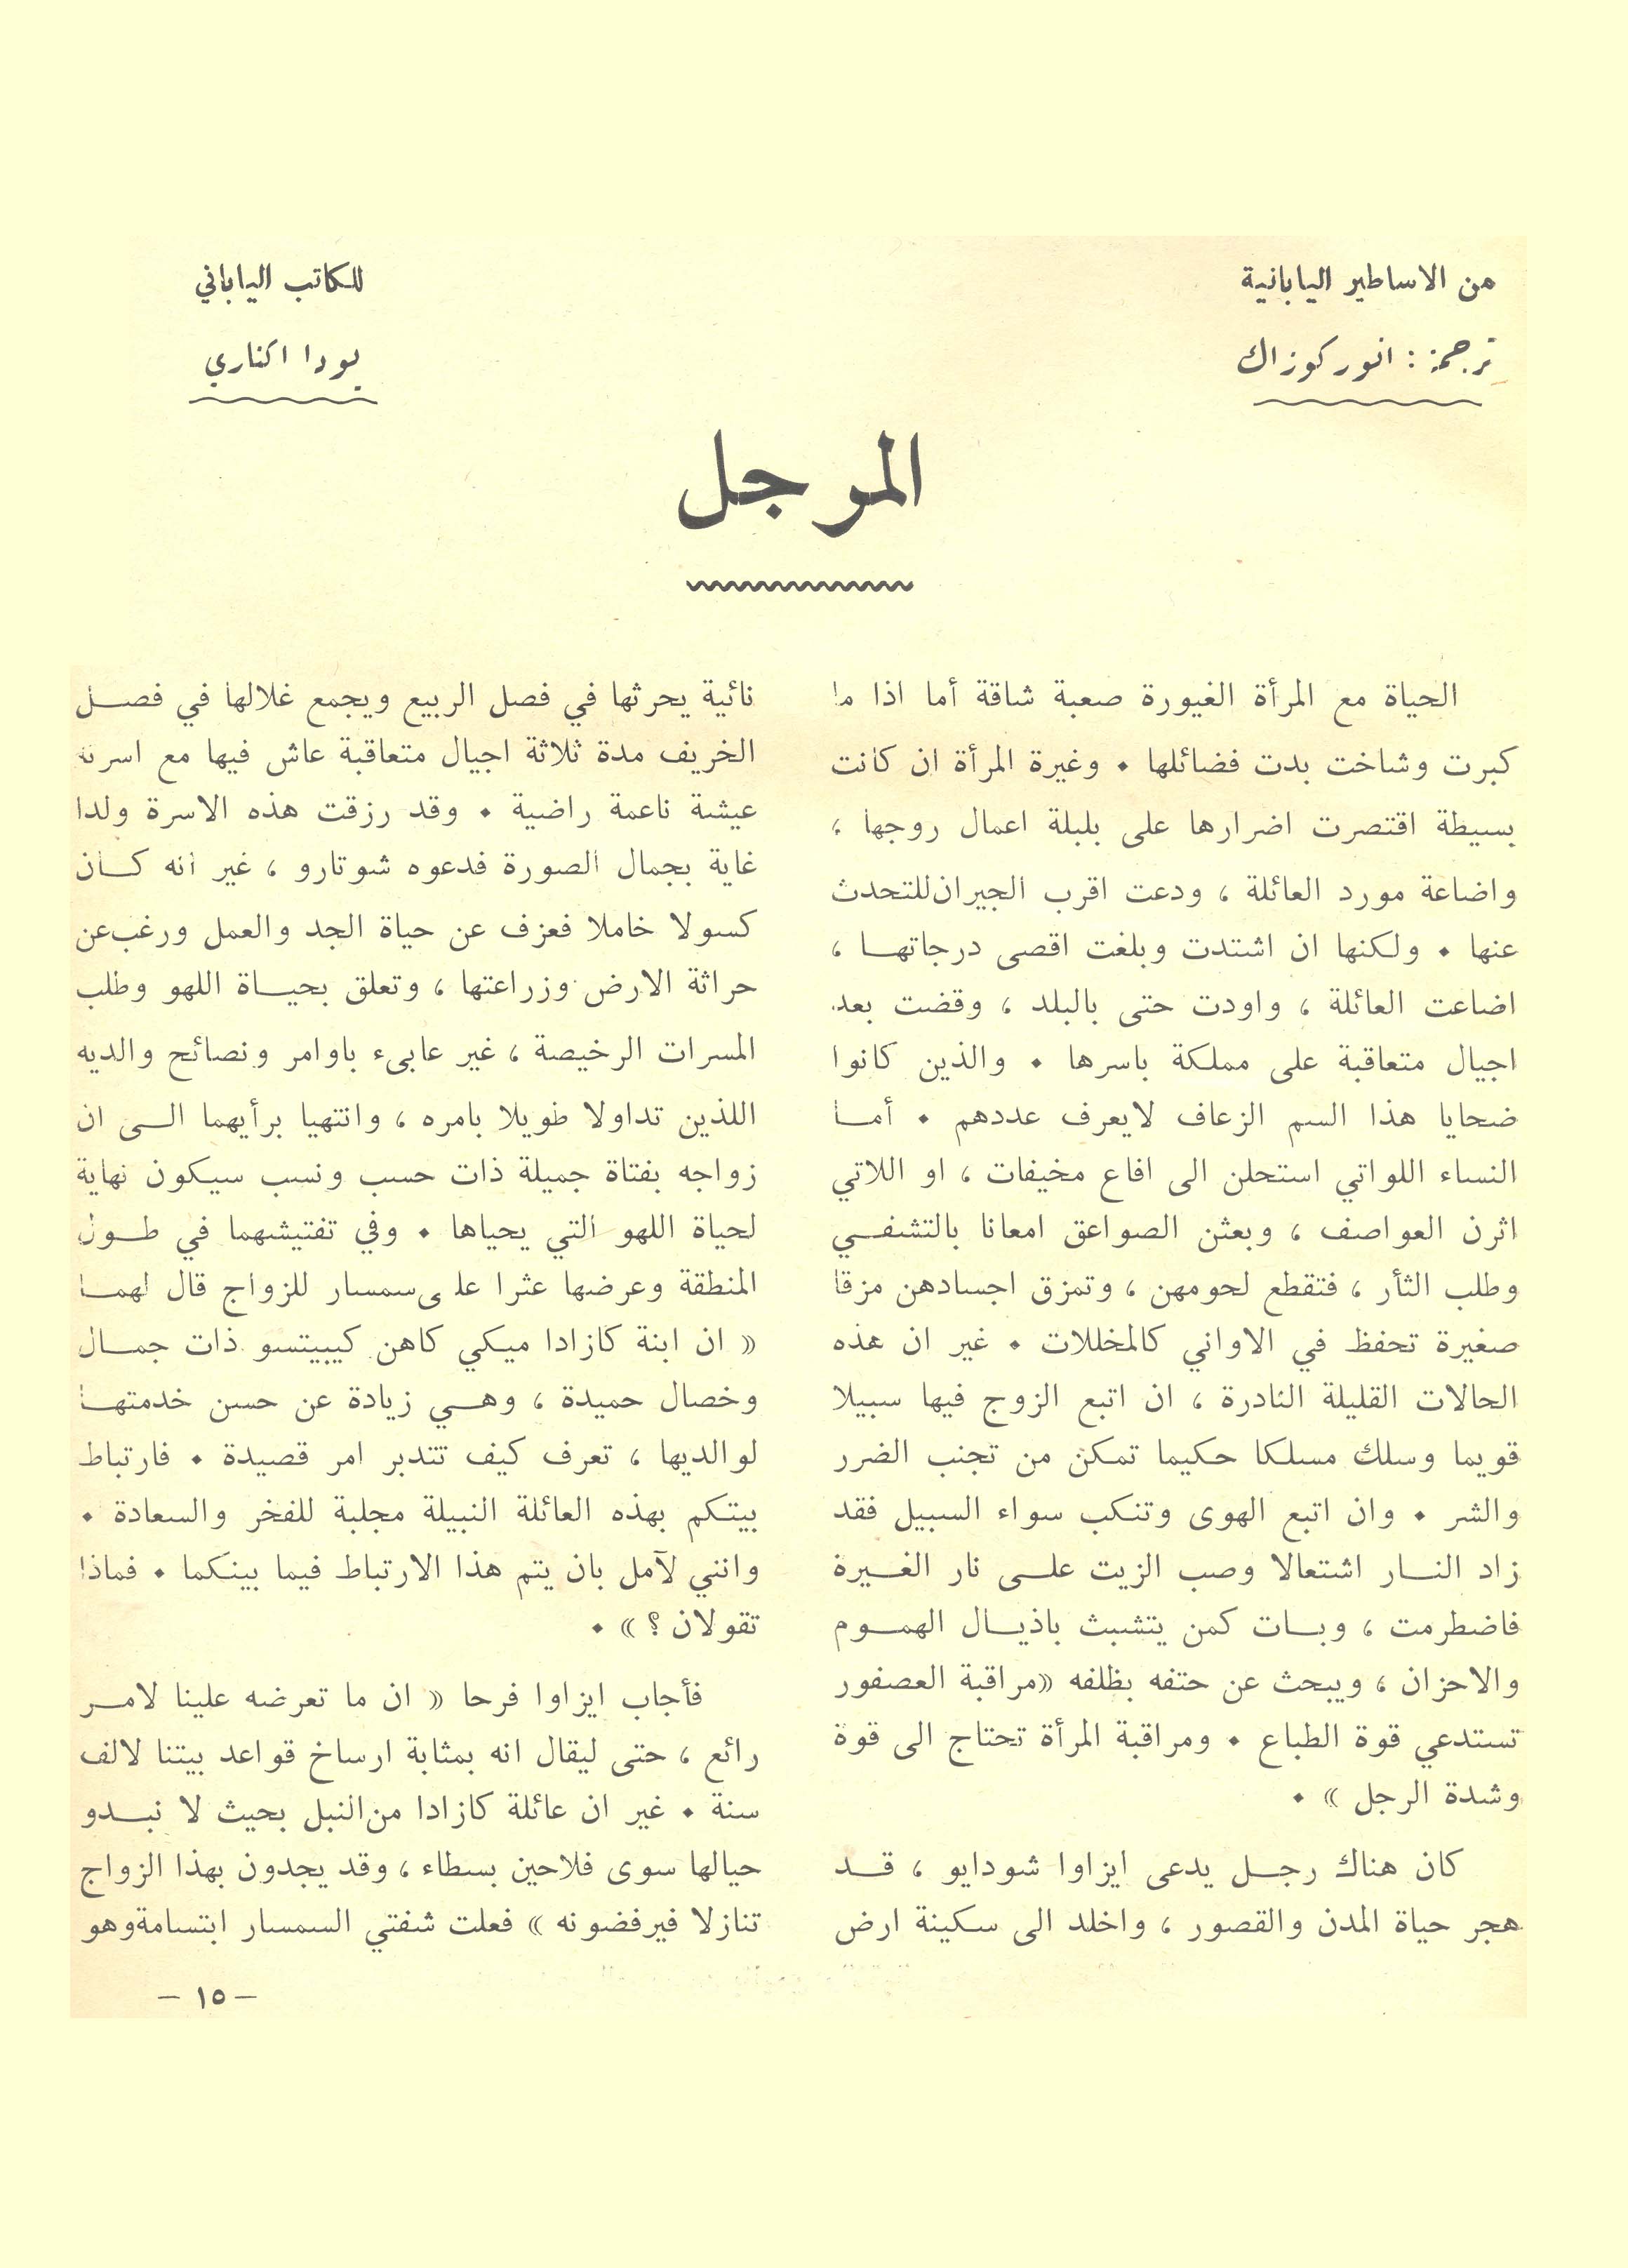 من الاساطير اليابانية
ترجمة : انور كوزاك
للكاتب الياباني
يودا اكناري
المرجل
الحياة مع المرأة الغيورة صعبة شاقة أما اذا ما
كبرت وشاخت بدت فضائلها ٠ وغيرة المرأة ان كانت
بسيطة اقتصرت اضرارها على بلبلة اعمال روجها ،
واضاعة مورد العائلة ، ودعت اقرب الجيران للتحدث
عنها ٠ ولكنها ان اشتدت وبلغت اقصى درجاتهـا ،
اضاعت العائلة ، واودت حتى بالبلد ، وقضت بعد
اجيال متعاقبة على مملكة باسرها ٠ والذين كانوا
ضحايا هذا السم الزعاف لايعرف عددهم ٠ أمـا
النساء اللواتي استحلن الى افاع مخيفات ، او اللاتي
اثرن العواصف ، وبعثن الصواعق امعانا بالتشفـي
وطلب الثأر ، فتقطع لحومهن ، وتمزق اجسادهن مزقا
صغيرة تحفظ في الاواني كالمخللات ٠ غير ان هذه
الحالات القليلة النادرة ، ان اتبع الزوج فيها سبيلا
قويما وسلك مسلكا حكيما تمكن من تجنب الضرر
والشر ٠ وان اتبع الهوى وتنكب سواء السبيل فقد
زاد النـار اشتعالا وصب الزيت علـى نار الغـيرة
فاضطرمت ، وبـات كمن يتشبث باذيـال الهمـوم
والاحزان ، ويبحث عن حتفه بظلفه «مراقبة العصفور
تستدعي قوة الطباع ٠ ومراقبة المرأة تحتاج الى قوة
وشدة الرجل » ٠
كان هناك رجـل يدعى ايزاوا شودايو ، قـد
هجر حياة المدن والقصور ، واخلد الى سكينة ارض
نائية يحرثها في فصل الربيع ويجمع غلالها في فصـل
الخريف مدة ثلاثة اجيال متعاقبة عاش فيها مع اسرته
عيشة ناعمة راضية ٠ وقد رزقت هذه الاسرة ولدا
غاية بجمال الصورة فدعوه شوتارو ، غير انه كـان
كسولا خاملا فعزف عن حياة الجد والعمل ورغب عن
حراثة الارض وزراعتها ، وتعلق بحيـاة اللهو وطلب
المسرات الرخيصة ، غير عابىء باوامر ونصائح والديه
اللذين تداولا طويلا بامره ، وانتهيا برأيهما الـى ان
زواجه بفتاة جميلة ذات حسب ونسب سيكون نهاية
لحياة اللهو التي يحياها ٠ وفي تفتيشهما في طـول
المنطقة وعرضها عثرا على سمسار للزواج قال لهمـا
« ان ابنة كازادا ميكي كاهن كيبيتسو ذات جمـال
وخصال حميدة ، وهـي زيادة عن حسن خدمتهـا
لوالديها ، تعرف كيف تتدبر امر قصيدة ٠ فارتباط
بيتكم بهذه العائلة النبيلة مجلبة للفخر والسعادة ٠
وانني لآمل بان يتم هذا الارتباط فيما بينكما ٠ فماذا
تقولان ؟ » ٠
فأجاب ايزاوا فرحا « ان ما تعرضه علينا لامـر
رائع ، حتى ليقال انه بمثابة ارساخ قواعد بيتنا لالف
سنة ٠ غير ان عائلة كازادا من النبل بحيث لا نبـدو
حيالها سوى فلاحين بسطاء ، وقد يجدون بهذا الزواج
تنازلا فيرفضونه » فعلت شفتي السمسار ابتسامة وهو
– ١٥ –